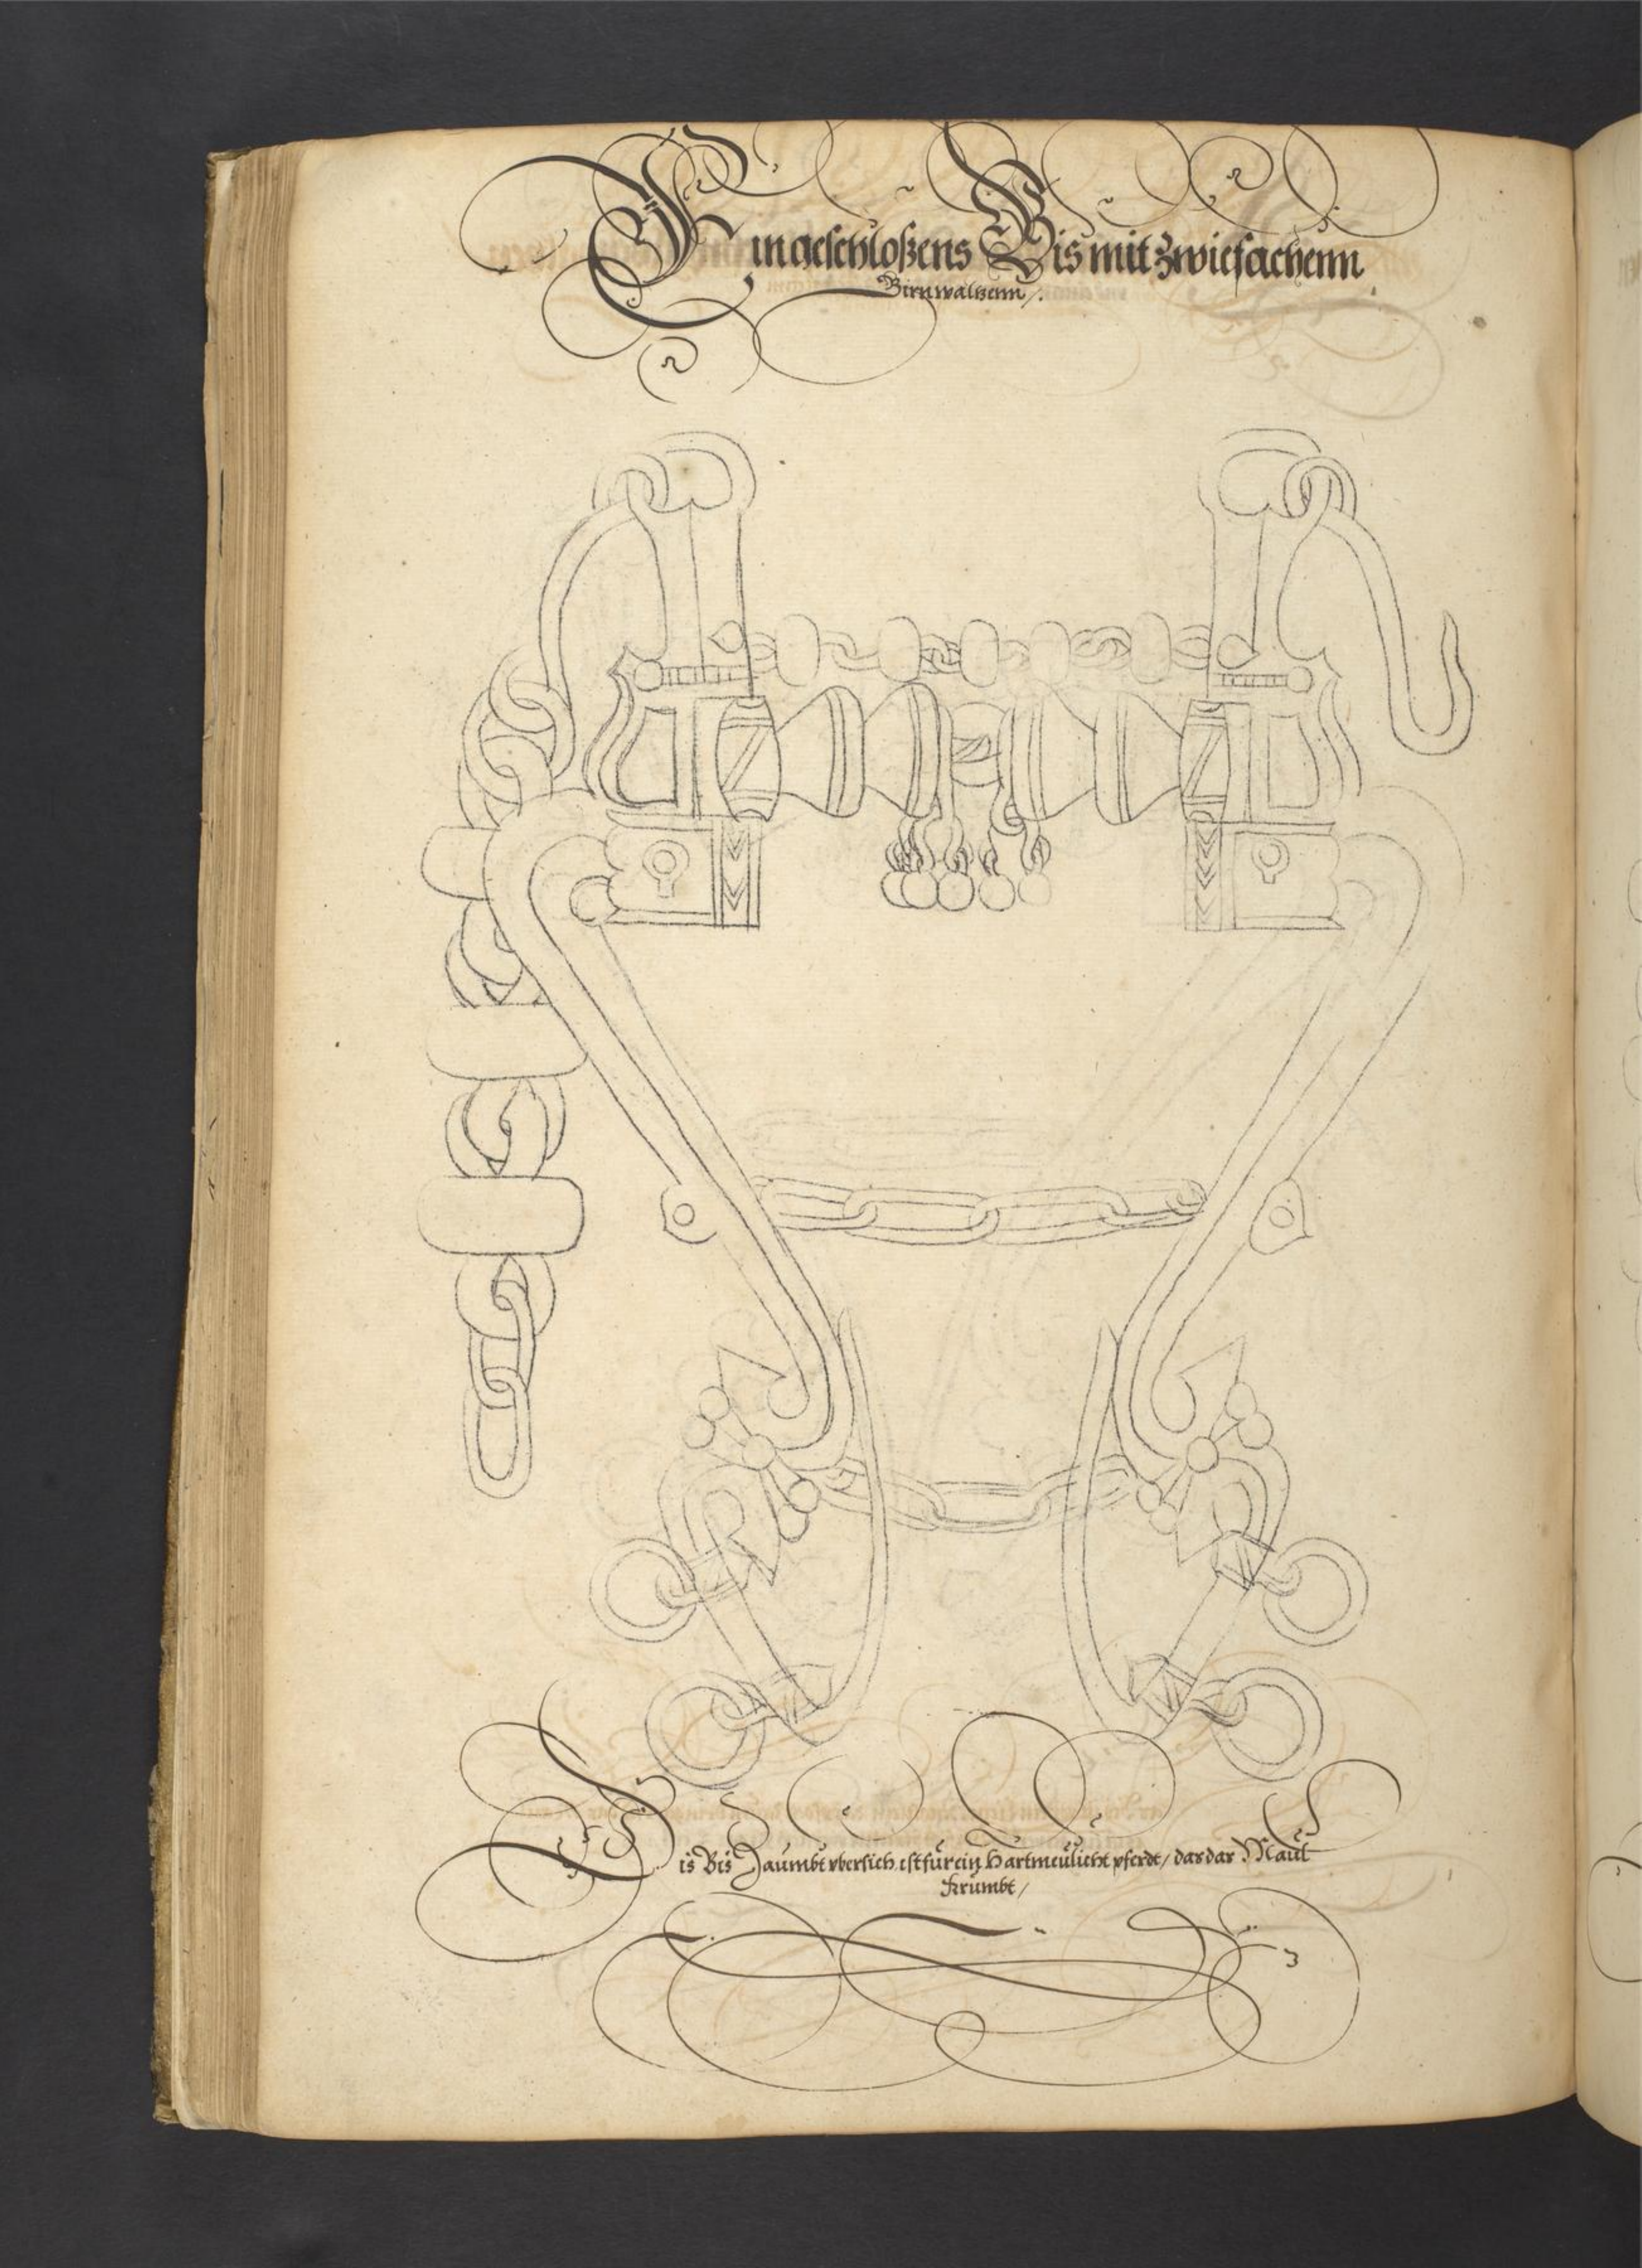 Ein geschloßens Bis mit zwiefachenn
Birnwaltzenn /.
Dis Bis Zaumbt vbersich, ist für ein Hartmeulicht pferdt / das dar Maul
krumbt /